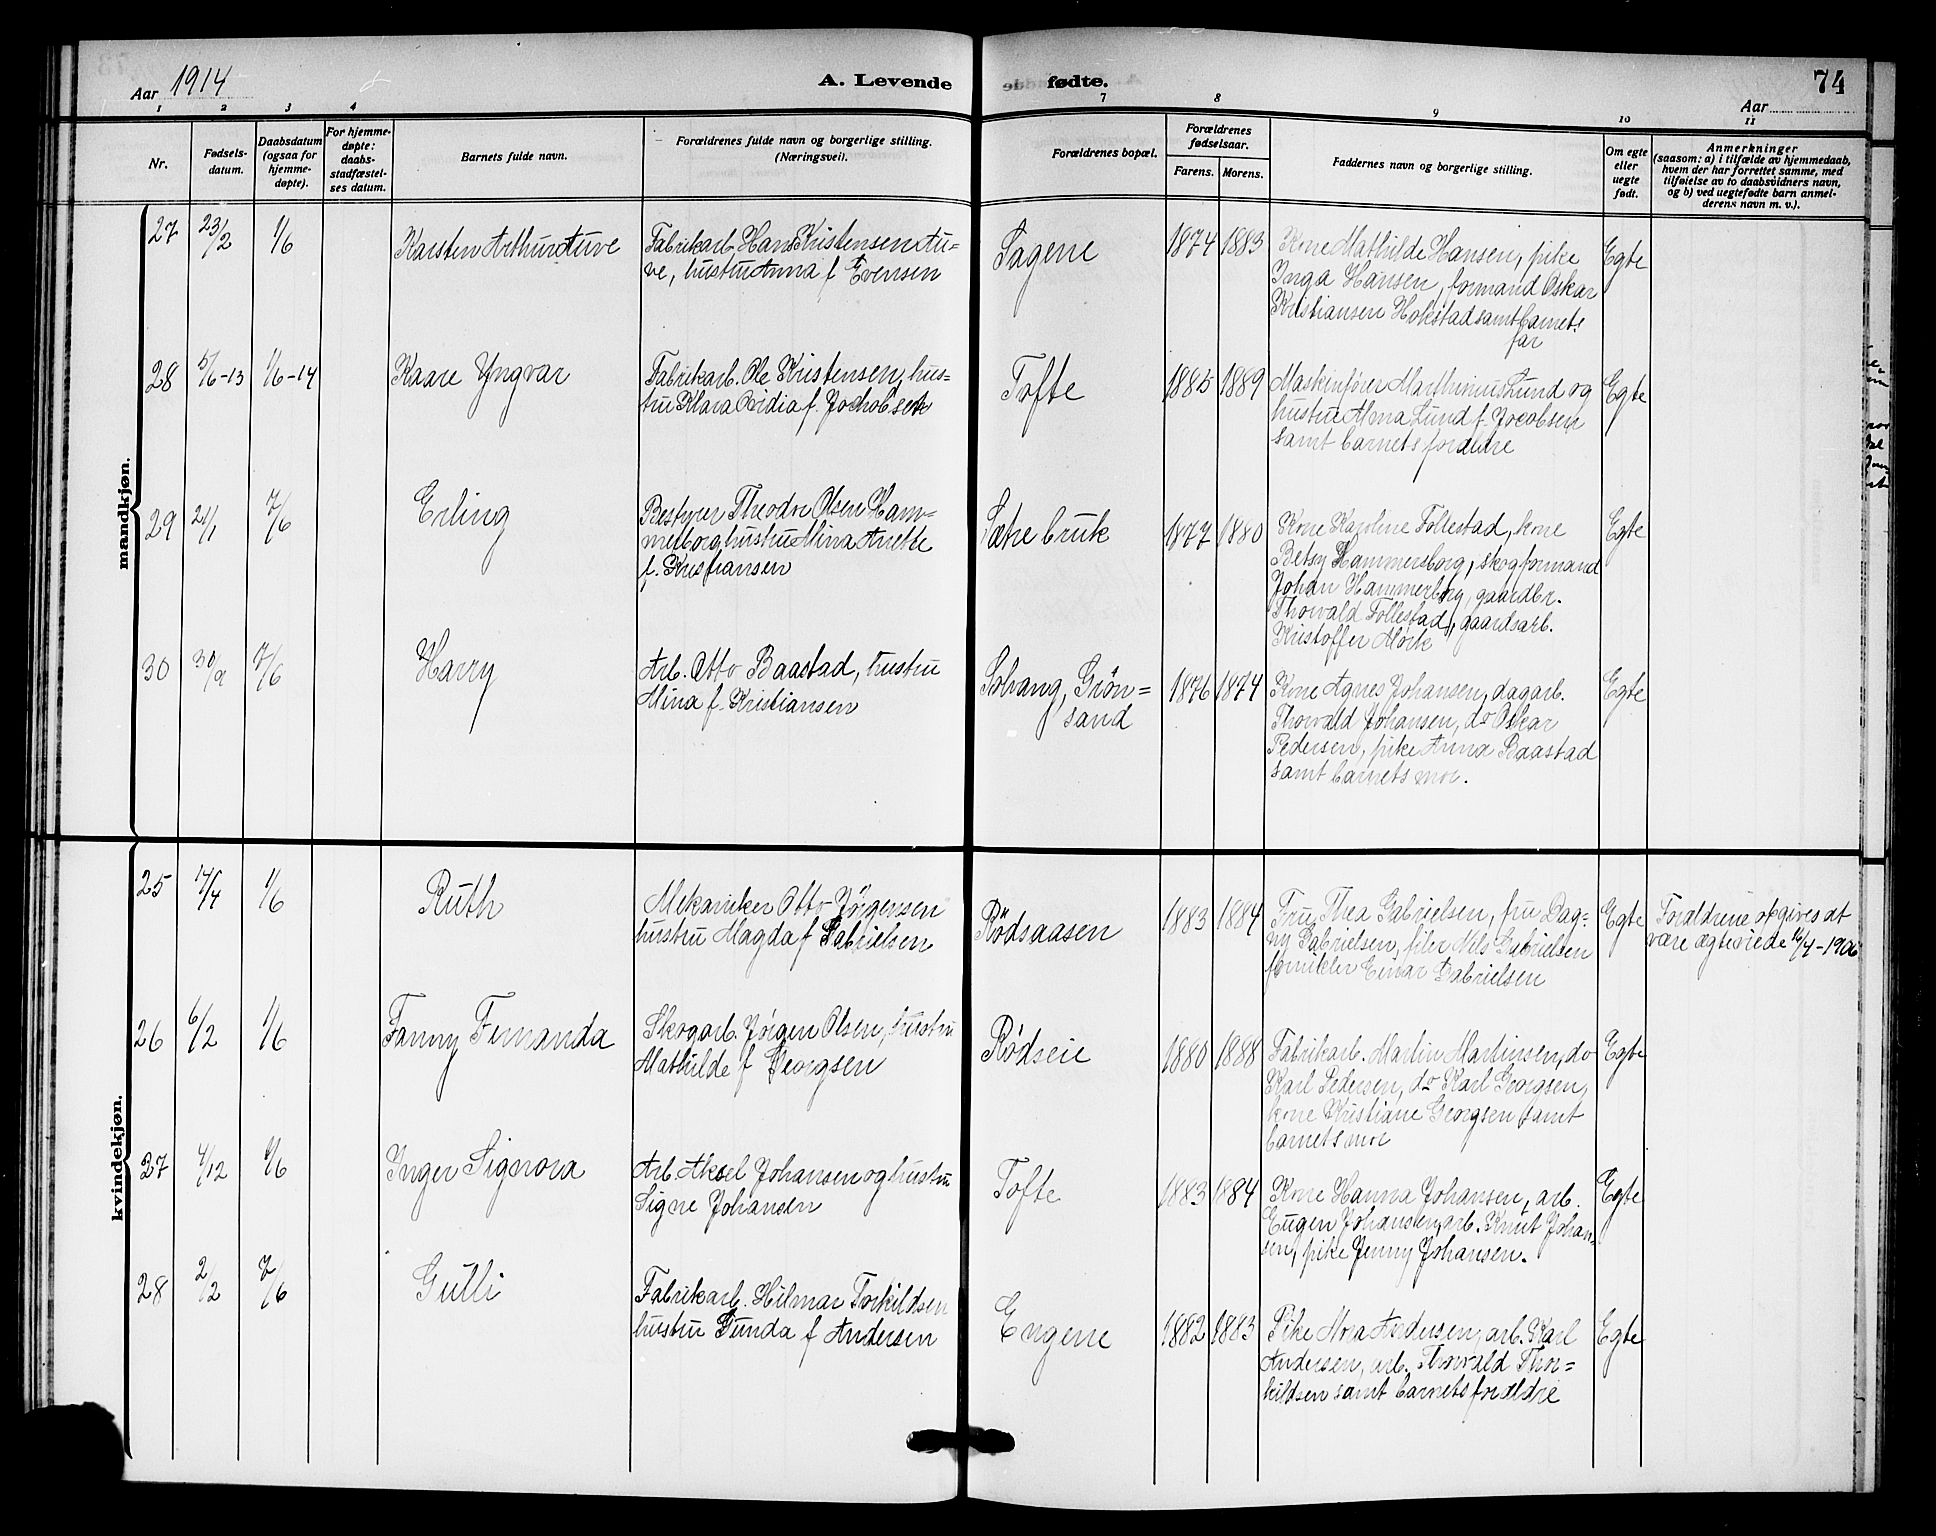 Aar 1914
A. Levende fødte.
74
Aar
1 2 3 4 7 8 9 10 11
Nr.
Fødsels-
datum.
Daabsdatum
(ogsaa for
hjemme-
døpte).
For hjemme-
døpte:
daabs-
stadfæstel-
ses datum.
Barnets fulde navn.
Forældrenes fulde navn og borgerlige stilling.
(Næringsvei).
Forældrenes bopæl.
Forældrenes
fødselsaar.
Farens. Morens.
Faddernes navn og borgerlige stilling.
Om egte
eller
uegte
født.
Anmerkninger
(saasom: a) i tilfælde av hjemmedaab,
hvem der har forrettet samme, med
tilføielse av to daabsvidners navn,
og b) ved uegtefødte barn anmel-
derens navn m. v.).
mandkjøn.
27 23/2 1/6 Karsten Arthur Auve
Fabrikarb. Hans Kristensen Au-
ve, hustru Anna f Evensen
Sagene 1874 1883
Kone Mathilde Hansen, pike
Inga Hansen, formand Oskar
Kristiansen Hokstad samt barnets
far
Egte
28 5/6-13 1/6-14 Kaare Yngvar
Fabrikarb. Ole Kristensen, hus-
tru Klara Ovidia f. Jachobsen
Tofte 1885 1889
Maskinfører Marthinius Lund og
hustru Alma Lund f. Jocobsen
samt barnets foreldre
Egte
29 21/1 7/6 Erling
Bestyrer Theodor Olsen Ham-
merborg, hustru Mina Anette
f. Kristiansen
Sætre bruk 1877 1880
Kone Karoline Follestad, kone
Betsy Hammersborg, skogformand
Johan Hammerborg, gaardbr.
Thorvald Follestad, gaardsarb.
Kristoffer Mørk
Egte
30 30/9 7/6 Harry
Arb. Otto Baastad, hustru
Mina f. Kristiansen
Solvang, Grön=
sand
1876 1874
Kone Agnes Johansen, dagarb.
Thorvald Johansen, do Oskar
Pedersen, pike Anna Baastad
samt barnets mor.
Egte
kvindekjøn.
25 17/4 1/6 Ruth
Mekaniker Otto Jörgensen
hustru Magda f Gabrielsen
Rödsaasen 1883 1884
Fru Thea Gabrielsen, fru Dag-
ny Gabrielsen, filer Nils Gabrielsen
Einar Gabrielsen
Egte
Foreldrene opgives at
være ægteviede 16/4-1906
26 6/2 1/6 Fanny Fernanda
Skogarb. Jörgen Olsen, hustru
Mathilde f Georgsen
Rödseie 1880 1888
Fabrikarb. Martin Martinsen, do
Karl Pedersen, do Karl Georgsen,
kone Kristiane Georgsen samt
barnets mor
Egte
27 4/12 1/6 Inger Signora
Arb. Aksel Johansen og hustru
Signe Johansen
Tofte 1883 1884
Kone Hanna Johansen, arb.
Eugen Johansen, arb. Knut Johan-
sen, pike Jenny Johansen.
Egte
28 2/2 7/6 Gulli
Fabrikarb. Hilmar Torkildsen
hustru Gunda f Andersen
Engene 1882 1883
Pike Mora Andersen, arb. Karl
Andersen, arb. Thorvald Thor=
kildsen samt barnets forældre
Egte